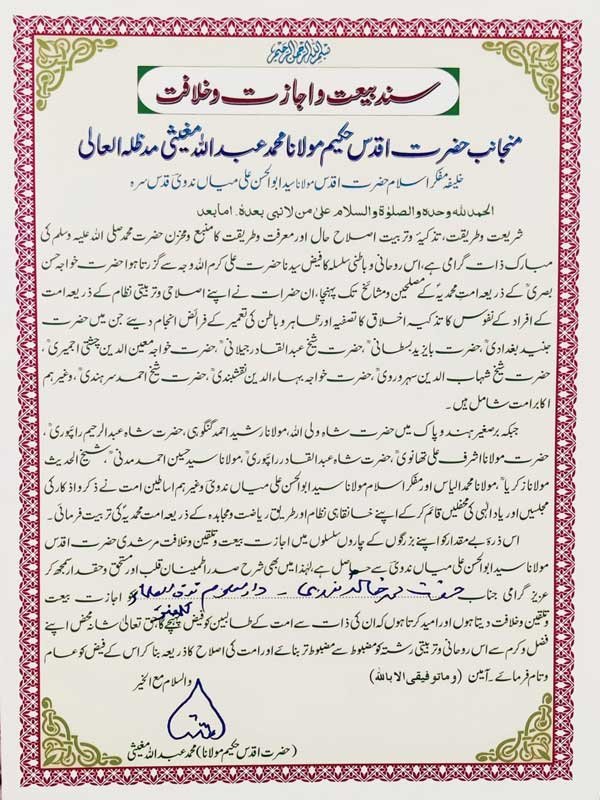 بسم اللہ الرحمن الرحیم
سند بیعت و اجازت و خلافت
منجانب حضرت اقدس حکیم مولانا محمد عبد اللہ مغیثی مدظلہ العالی
خلیفہ مفکر اسلام حضرت اقدس مولانا سید ابوالحسن علی میاں ندوی قدس سرہ
الحمدللہ وحدہ والصلوٰۃ والسلام علیٰ من لا نبی بعدہ۔ امابعد
شریعت وطریقت، تذکیہ وتربیت اصلاح حال اور معرفت وطریقت کا منبع ومخزن حضرت محمد صلی اللہ علیہ وسلم کی
مبارک ذات گرامی ہے، اس روحانی و باطنی سلسلہ کا فیض سیدنا حضرت علی کرم اللہ وجہ سے گزرتا ہوا حضرت خواجہ حسن
بصریؒ کے ذریعہ امت محمدیہ کے مصلحین ومشائخ تک پہنچا، ان حضرات نے اپنے اصلاحی وتربیتی نظام کے ذریعہ امت
کے افراد کے نفوس کا تذکیہ اخلاق کا تصفیہ اور ظاہر و باطن کی تعمیر کے فرائض انجام دیئے جن میں حضرت
جنید بغدادیؒ، حضرت بایزید بسطانیؒ، حضرت شیخ عبدالقادر جیلانیؒ، حضرت خواجہ معین الدین چشتی اجمیریؒ،
حضرت شیخ شہاب الدین سہروردیؒ، حضرت خواجہ بہاء الدین نقشبندیؒ، حضرت شیخ احمد سرہندیؒ، وغیرہم
اکابر امت شامل ہیں۔
جبکہ برصغیر ہند و پاک میں حضرت شاہ ولی اللہ، مولانا رشید احمد گنگوہی، حضرت شاہ عبدالرحیم رائپوریؒ،
حضرت مولانا اشرف علی تھانویؒ، حضرت شاہ عبدالقادر رائپوریؒ، مولانا سید حسین احمد مدنیؒ، شیخ الحدیث
مولانا زکریاؒ، مولانا محمد الیاس اور مفکر اسلام مولانا سید ابوالحسن علی میاں ندویؒ وغیرہم اساطین امت نے ذکر و اذکار کی
مجلسیں اور یاد الٰہی کی محفلیں قائم کر کے اپنے خانقاہی نظام اور طریق ریاضت ومجاہدہ کے ذریعہ امت محمدیہ کی تربیت فرمائی۔
اس ذرۂ بے مقدار کو اپنے بزرگوں کے چاروں سلسلوں میں اجازت بیعت وتلقین وخلافت مرشدی حضرت اقدس
مولانا سید ابوالحسن علی میاں ندویؒ سے حاصل ہے، لہٰذا میں بھی شرح صدر اطمینان قلب اور مستحق وحقدار سمجھ کر
عزیز گرامی جناب حضرت محمد خالد ندوی - دارالعلوم ندوۃ العلماء لکھنؤ کو اجازت بیعت
وتلقین وخلافت دیتا ہوں اور امید کرتا ہوں کہ ان کی ذات سے امت کے طالبین کو فیض پہنچے گا حق تعالیٰ شانہ محض اپنے
فضل وکرم سے اس روحانی وتربیتی رشتہ کو مضبوط سے مضبوط تر بنائے اور امت کی اصلاح کا ذریعہ بنا کر اس کے فیض کو عام
وتام فرمائے۔ آمین (وماتوفیقی الا باللہ)
والسلام مع الخیر
(حضرت اقدس حکیم مولانا) محمد عبد اللہ مغیثی